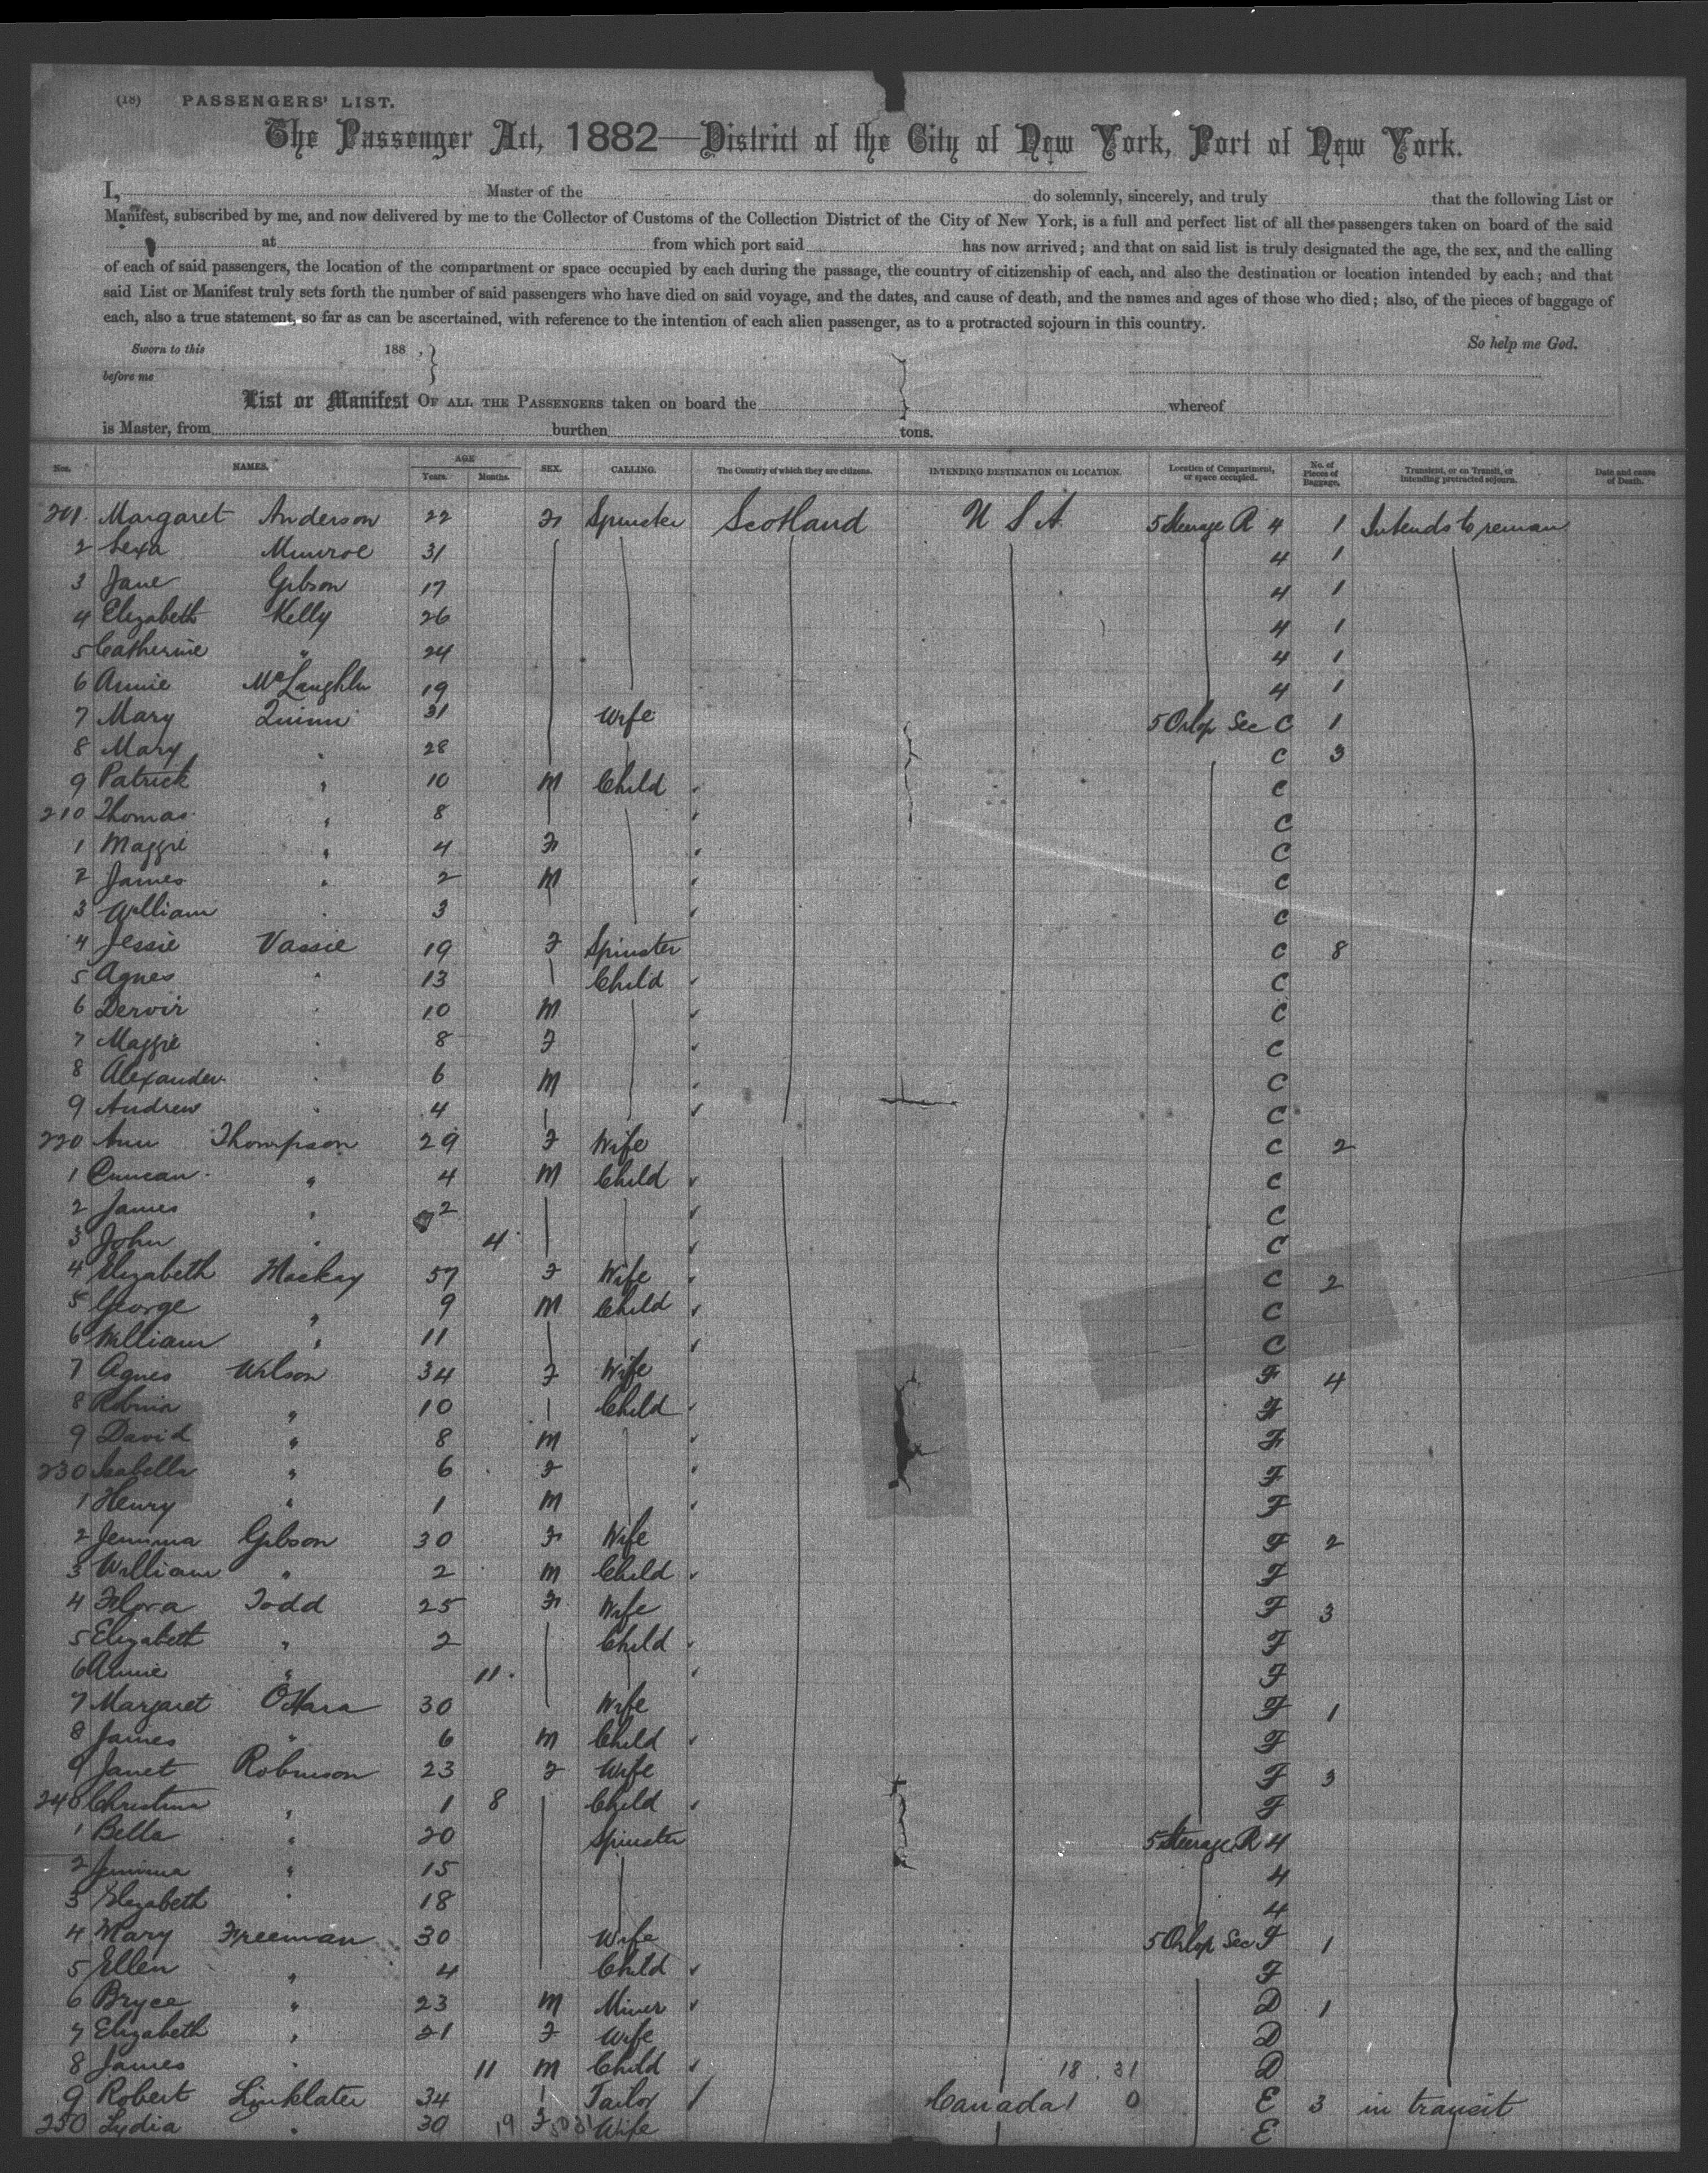 (18) PASSENGERS' LIST.
The Passenger Act, 1882—District of the City of New York, Port of New York.
I, Master of the do solemnly, sincerely, and truly that the following List or
Manifest, subscribed by me, and now delivered by me to the Collector of Customs of the Collection District of the City of New York, is a full and perfect list of all the passengers taken on board of the said
at from which port said has now arrived; and that on said list is truly designated the age, the sex, and the calling
of each of said passengers, the location of the compartment or space occupied by each during the passage, the country of citizenship of each, and also the destination or location intended by each; and that
said List or Manifest truly sets forth the number of said passengers who have died on said voyage, and the dates, and cause of death, and the names and ages of those who died; also, of the pieces of baggage of
each, also a true statement, so far as can be ascertained, with reference to the intention of each alien passenger, as to a protracted sojourn in this country.
So help me God.
Sworn to this 188 .
before me
List or Manifest OF ALL THE PASSENGERS taken on board the whereof
is Master, from burthen tons.
Nos. NAMES. AGE Years. Months. SEX. CALLING. The Country of which they are citizens. INTENDING DESTINATION OR LOCATION. Location of Compartment, or space occupied. No. of Pieces of Baggage. Transient, or en Transit, or intending protracted sojourn. Date and cause of Death.
201 Margaret Anderson 22 F Spinster Scotland U S A 5 Steerage R 4 1 Intends to remain
2 Lexa Munroe 31 4 1
3 Jane Gibson 17 4 1
4 Elizabeth Kelly 26 4 1
5 Catherine " 24 4 1
6 Annie McLaughlin 19 4 1
7 Mary Quinn 31 Wife 5 Orlop Sec C 1
8 Mary " 28 C 3
9 Patrick " 10 M Child C
210 Thomas " 8 C
1 Maggie " 4 F C
2 James " 2 M C
3 William " 3 C
4 Jessie Vassie 19 F Spinster C 8
5 Agnes " 13 Child C
6 Dervoir " 10 M C
7 Maggie " 8 F C
8 Alexander " 6 M C
9 Andrew " 4 C
220 Ann Thompson 29 F Wife C 2
1 Duncan " 4 M Child C
2 James " 2 C
3 John " 4 C
4 Elizabeth Mackay 57 F Wife C 2
5 George " 9 M Child C
6 William " 11 C
7 Agnes Wilson 34 F Wife F 4
8 Robina " 10 Child F
9 David " 8 M F
230 Isabella " 6 F F
1 Henry " 1 M F
2 Jemima Gibson 30 F Wife F 2
3 William " 2 M Child F
4 Flora Todd 25 F Wife F 3
5 Elizabeth " 2 Child F
6 Annie " 11 F
7 Margaret O'Hara 30 Wife F 1
8 James " 6 M Child F
9 Janet Robinson 23 F Wife F 3
240 Christina " 1 8 Child F
1 Bella " 20 Spinster 5 Steerage R 4
2 Jemima " 15 4
3 Elizabeth " 18 4
4 Mary Freeman 30 Wife 5 Orlop Sec F 1
5 Ellen " 4 Child F
6 Bryce " 23 M Miner D 1
7 Elizabeth " 21 F Wife D
8 James " 11 M Child 18 . 31 D
9 Robert Linklater 34 Tailor Canada 1 0 E 3 in transit
250 Lydia " 30 19 F Wife E